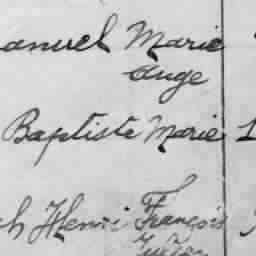 anuel Marie
Ange
Baptiste Marie 1
ch Henri François